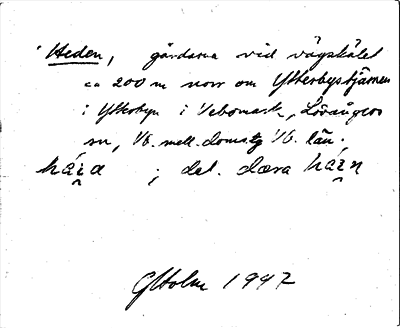 'Heden, gårdarna vid vägskälet
ca 200 m norr om Ytterbystjärnen
i Ytterbyn i Vebomark, Lövångers
sn, Vb. mell. domstg Vb. län.
; dat. dæra
G Holm 1947